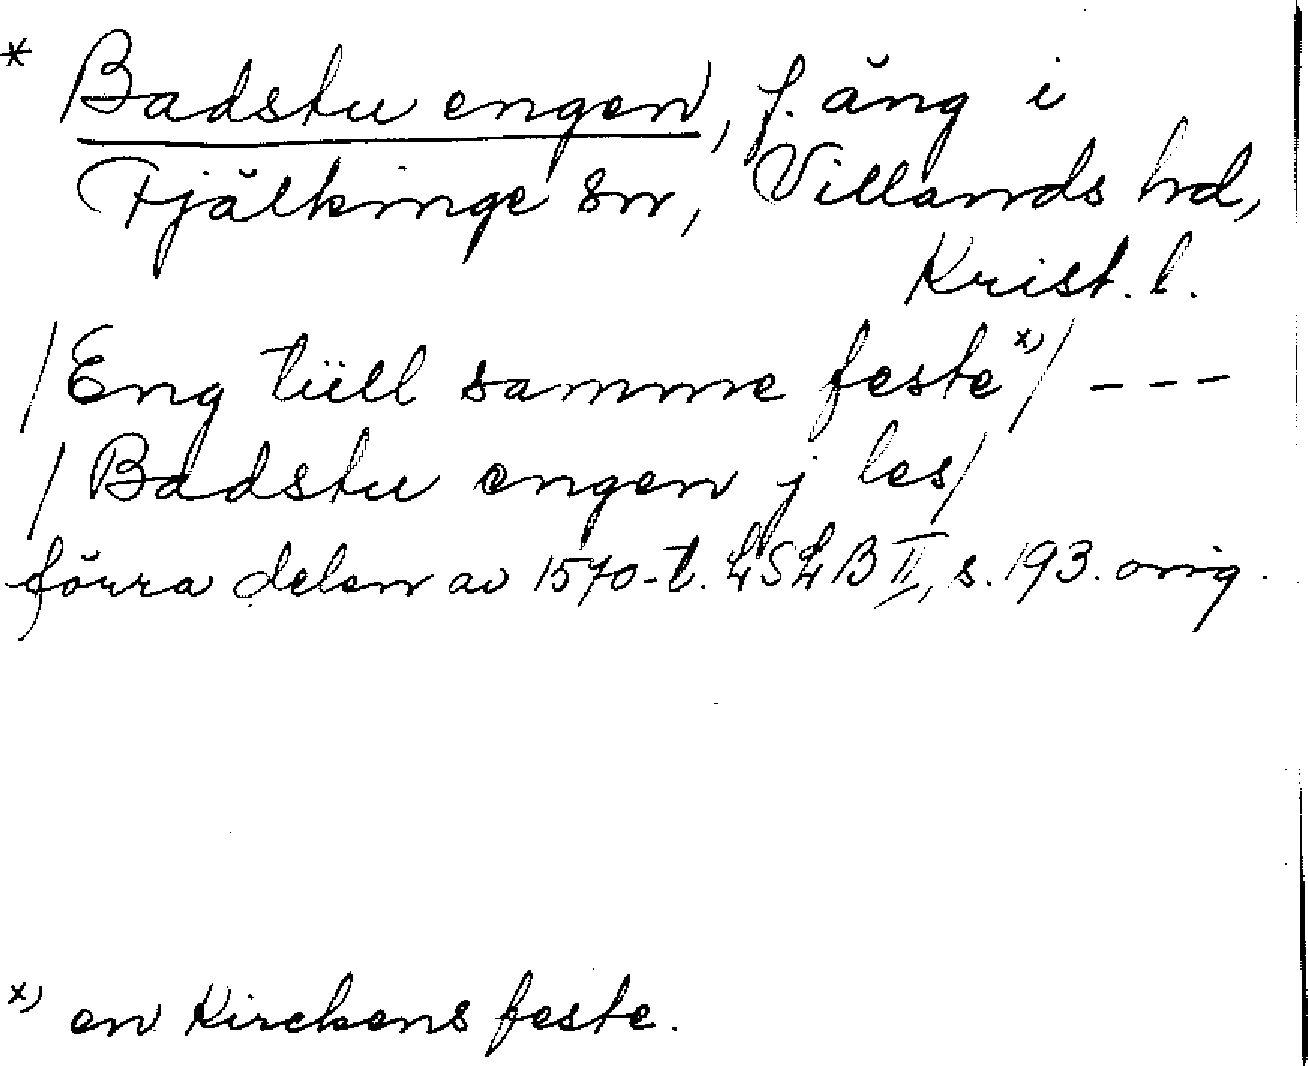 * Badstu engen, f. äng i
Fjälkinge sn, Villands hd,
Krist. l.
/Eng tüll samme feste x)/ ---
/Badstu engen j les/
förra delen av 1570-t. LSLB II, s. 193. orig.
x) en Kirckens feste.